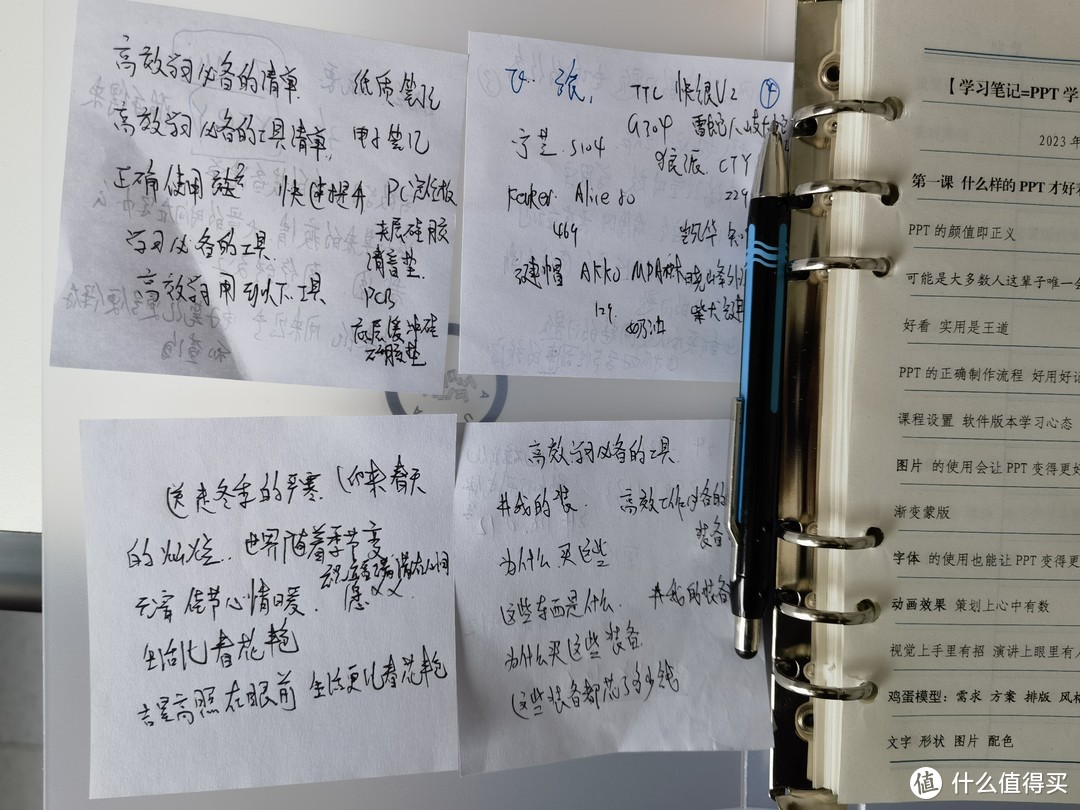 高效学习必备的清单. 纸质笔记
高效学习必备的工具清单, 电子笔记
正确使用 快速提升 PC定位板
学习必备的工具 夹层硅胶
消音垫.
高效学习用到以下工具 PCB
底层缓冲硅
胶垫
张, TTC 快银V2 ④
G304 雷蛇八岐大蛇
宁芝. S104 狼派. CTY
Feker. Alice 80 229
469 凯华
键帽 AKKO. MDA 晓峰
129. 奶油 柴犬键
送走冬季的严寒. 迎来春天
的灿烂. 世界随着季节变
佳节心情暖.
生活比春花艳
高照在眼前 生活更比春花艳
高效学习必备的工具.
#我的装. 高效工作必备的
装备
为什么买这些
这些东西是什么. #我的装备
为什么买这些装备
这些装备都花了多少钱
【学习笔记=PPT 学
2023 年
第一课 什么样的 PPT 才好
PPT 的颜值即正义
可能是大多数人这辈子唯一
好看 实用是王道
PPT 的正确制作流程 好用好
课程设置 软件版本学习心态
图片 的使用会让 PPT 变得更
渐变蒙版
字体 的使用也能让 PPT 变得更
动画效果 策划上心中有数
视觉上手里有招 演讲上眼里有
鸡蛋模型：需求 方案 排版 风格
文字 形状 图片 配色
值 什么值得买